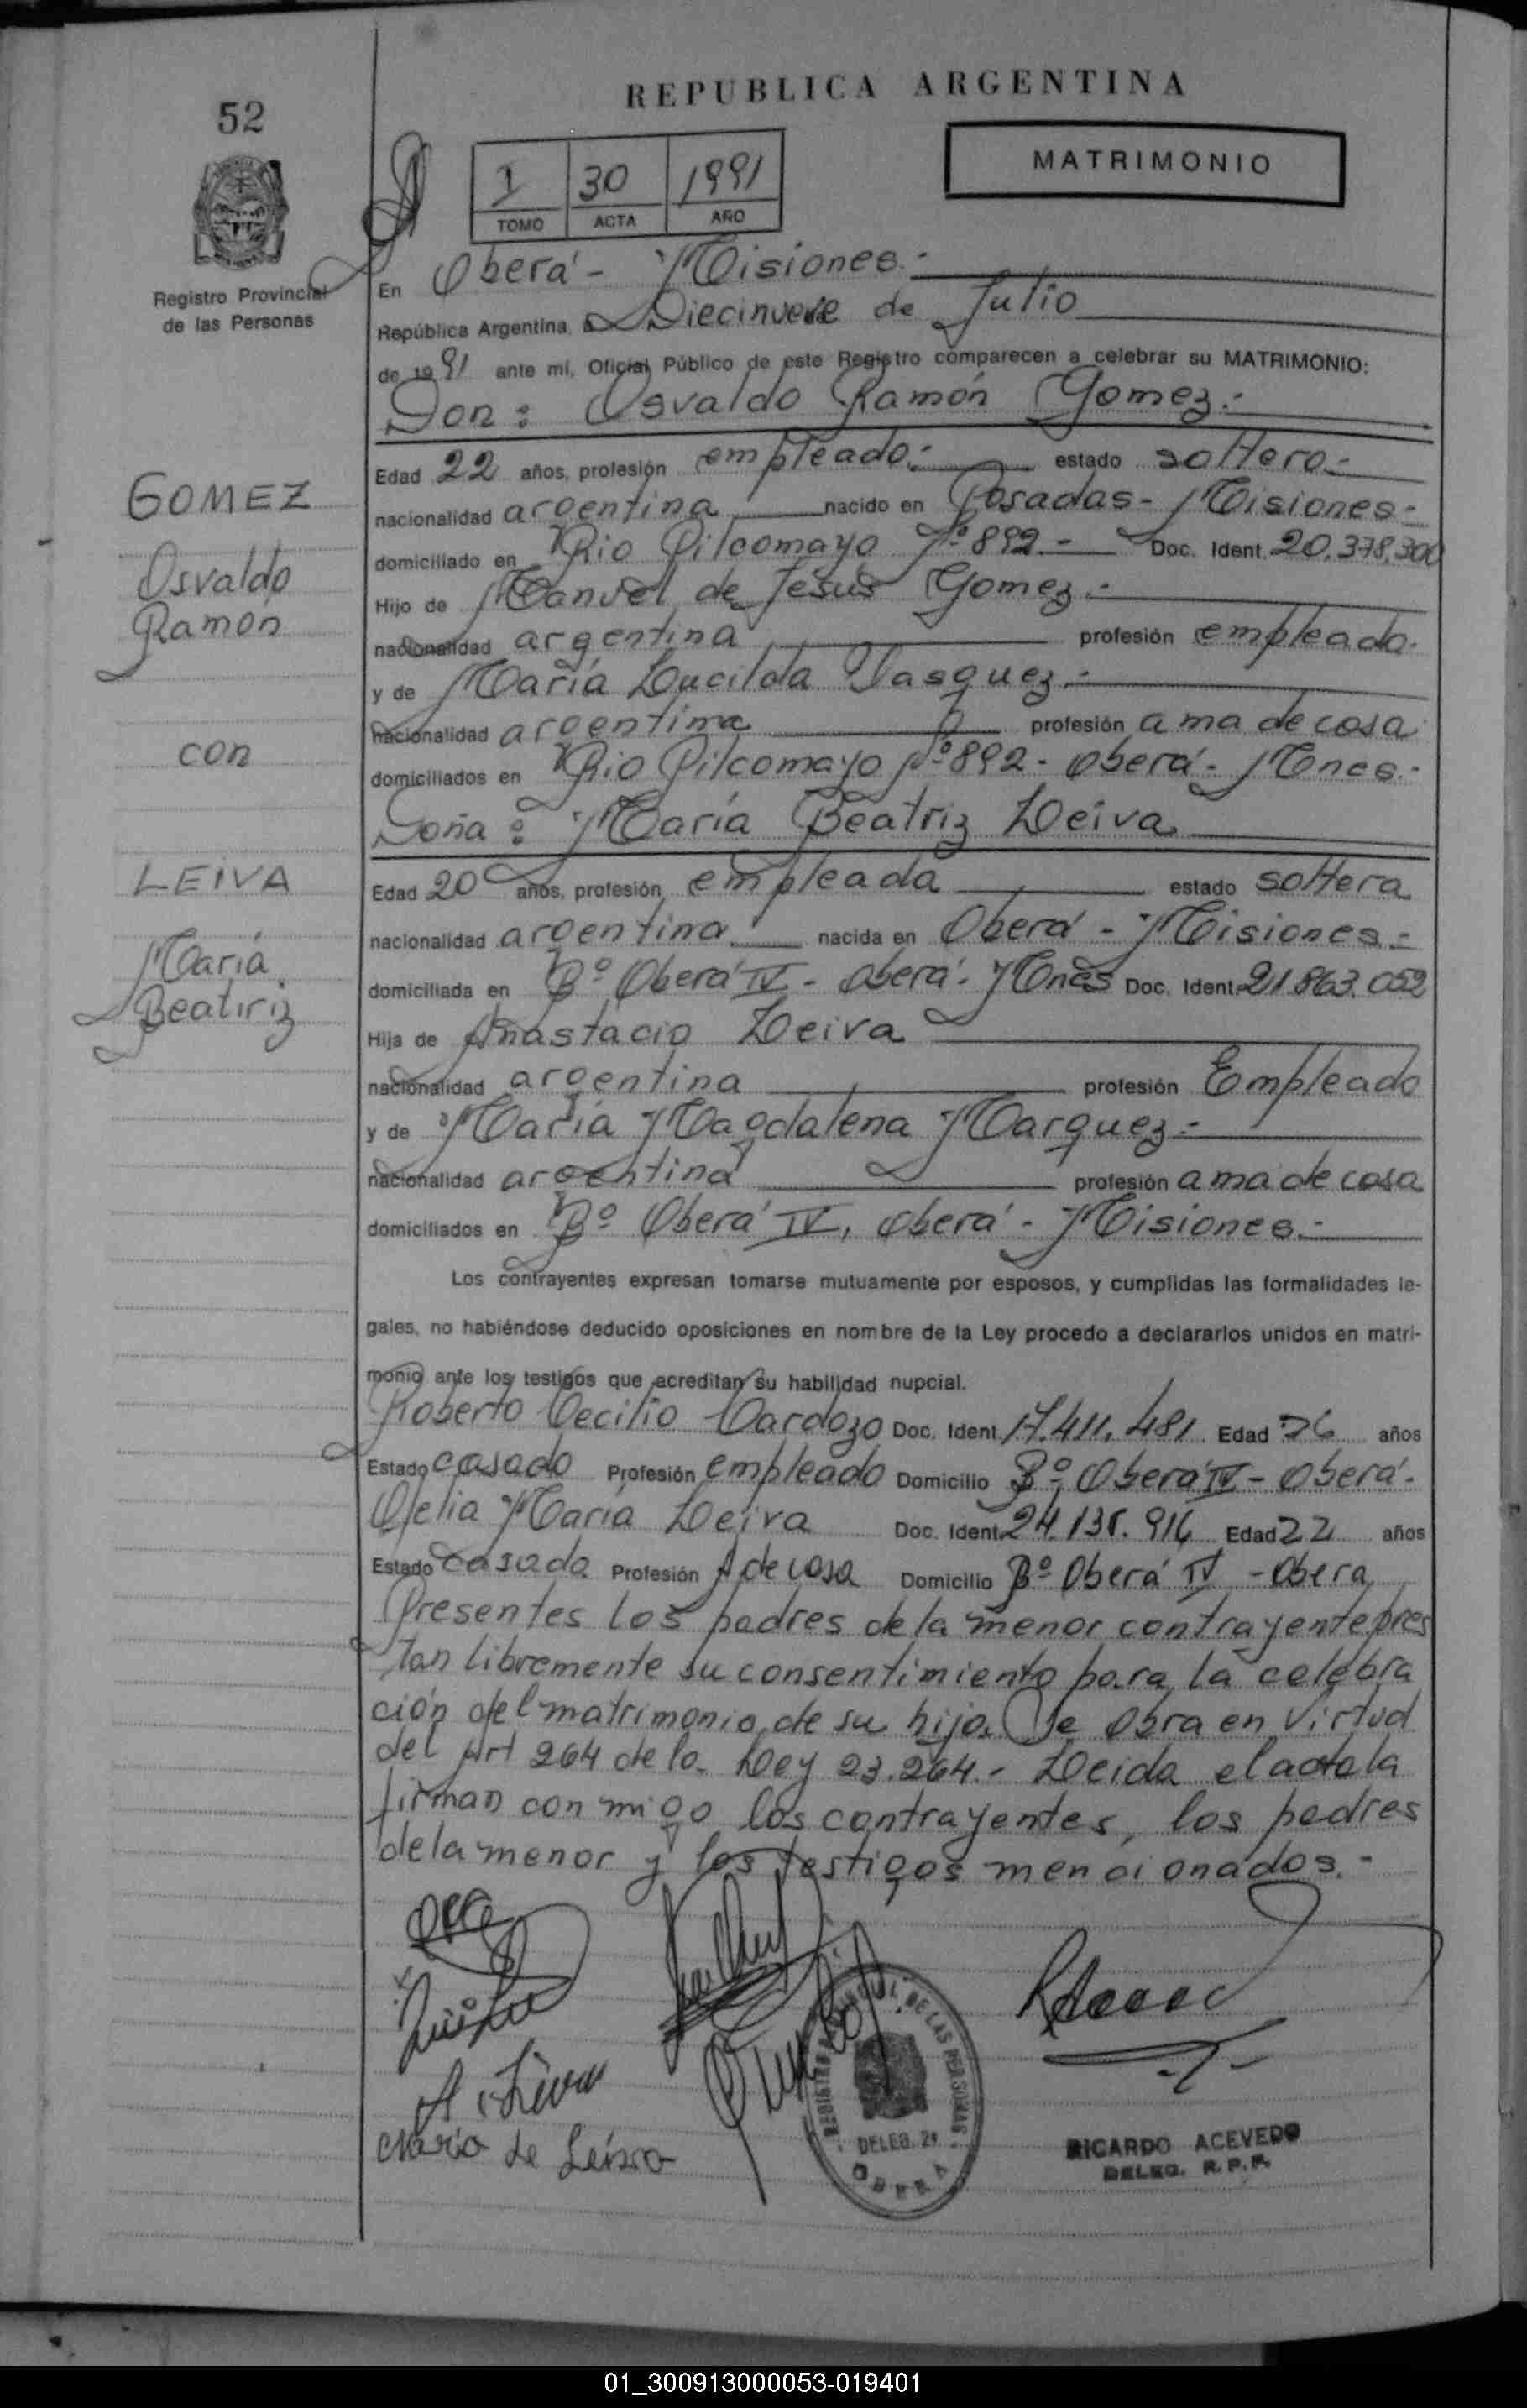 REPUBLICA ARGENTINA
52
MATRIMONIO
1 30 1991
TOMO ACTA AÑO
Registro Provincial
de las Personas
En Oberá - Misiones.-
República Argentina, a Diecinueve de Julio
de 1991 ante mí, Oficial Público de este Registro comparecen a celebrar su MATRIMONIO:
Don: Osvaldo Ramón Gomez.-
Edad 22 años, profesión empleado.- estado soltero.-
nacionalidad argentina nacido en Posadas - Misiones.-
domiciliado en Rio Pilcomayo Nº 892.- Doc. Ident. 20.378.300
Hijo de Manuel de Jesus Gomez.-
nacionalidad argentina profesión empleado.
y de María Lucilda Vasquez.-
nacionalidad argentina profesión ama de casa
domiciliados en Rio Pilcomayo Nº 892 - Oberá - Mnes.-
Doña: María Beatriz Leiva
Edad 20 años, profesión empleada estado soltera
nacionalidad argentina nacida en Oberá - Misiones.-
domiciliada en Bº Oberá IV - Oberá - Mnes Doc. Ident. 21.863.052
Hija de Anastacio Leiva
nacionalidad argentina profesión Empleado
y de María Magdalena Marquez.-
nacionalidad argentina profesión ama de casa
domiciliados en Bº Oberá IV, Oberá - Misiones.-
GOMEZ
Osvaldo
Ramón
con
LEIVA
María
Beatriz
Los contrayentes expresan tomarse mutuamente por esposos, y cumplidas las formalidades le-
gales, no habiéndose deducido oposiciones en nombre de la Ley procedo a declararlos unidos en matri-
monio ante los testigos que acreditan su habilidad nupcial.
Roberto Cecilio Cardozo Doc. Ident. 17.411.481 Edad 26 años
Estado casado Profesión empleado Domicilio Bº Oberá IV - Oberá.
Ofelia María Leiva Doc. Ident. 24.138.916 Edad 22 años
Estado casada Profesión A de casa Domicilio Bº Oberá IV - Obera
Presentes los padres de la menor contrayente pres
tan libremente su consentimiento para la celebra
ción del matrimonio de su hija. Se obra en virtud
del Art 264 de la Ley 23.264.- Leida el acta la
firman con migo los contrayentes, los padres
de la menor y los testigos mencionados.-
A Leiva
Maria de Leiva
REGISTRO PROVINCIAL DE LAS PERSONAS
DELEG. 2ª
OBERA
RICARDO ACEVEDO
DELEG. R.P.P.
01_300913000053-019401